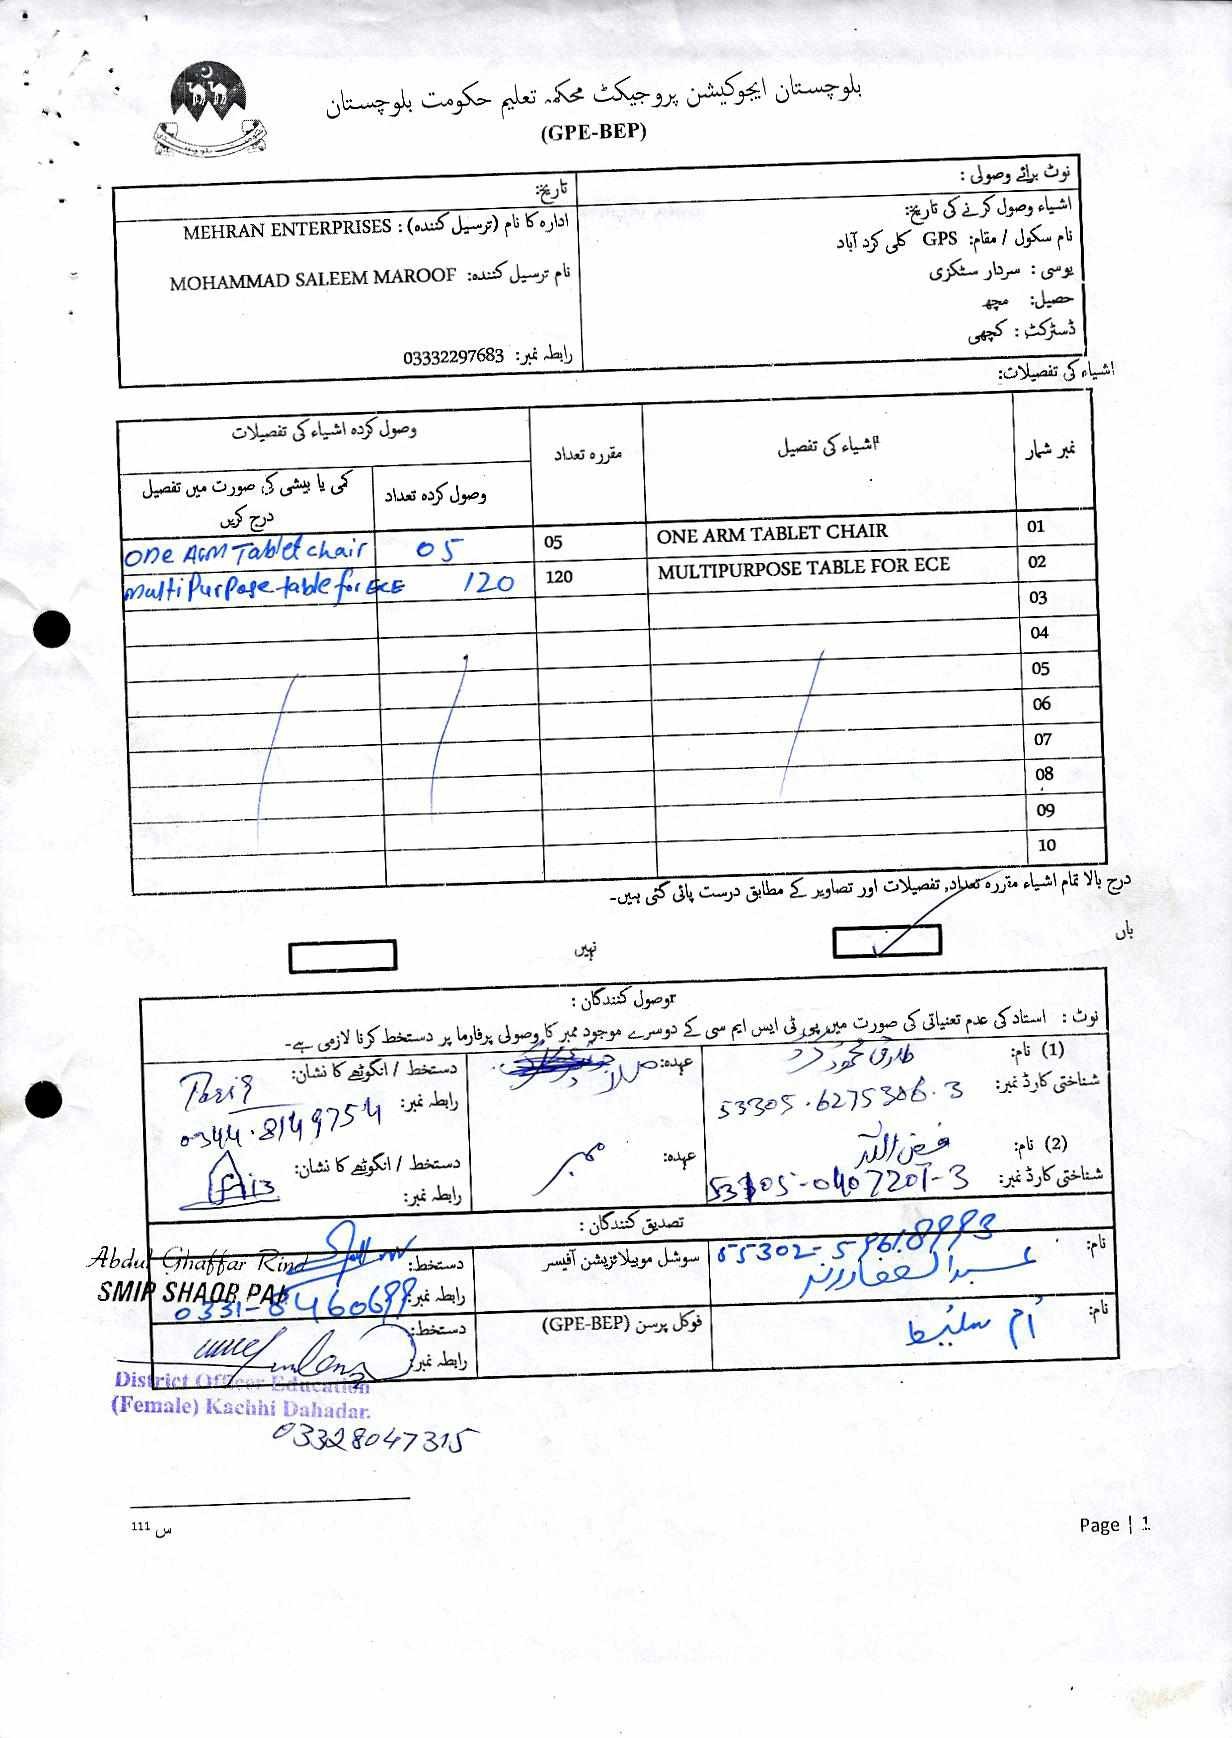 بلوچستان ایجوکیشن پروجیکٹ محکمہ تعلیم حکومت بلوچستان
(GPE-BEP)
نوٹ برائے وصولی :
اشیاء وصول کرنے کی تاریخ:
نام سکول / مقام: GPS کلی کرد آباد
یوسی : سردار ستکزی
حصیل: مچھ
ڈسٹرکٹ : کچھی
تاریخ:
ادارہ کا نام (ترسیل کنندہ) : MEHRAN ENTERPRISES
نام ترسیل کنندہ: MOHAMMAD SALEEM MAROOF
رابطہ نمبر: 03332297683
اشیاء کی تفصیلات:
نمبر شمار
اشیاء کی تفصیل
مقررہ تعداد
وصول کردہ اشیاء کی تفصیلات
وصول کردہ تعداد
کمی یا بیشی کی صورت میں تفصیل
درج کریں
01 ONE ARM TABLET CHAIR 05 05 One ARM Tablet chair
02 MULTIPURPOSE TABLE FOR ECE 120 120 Multi Purpose table for ECE
03
04
05
06
07
08
09
10
درج بالا تمام اشیاء مقررہ تعداد, تفصیلات اور تصاویر کے مطابق درست پائی گئی ہیں۔
ہاں
نہیں
وصول کنندگان :
نوٹ : استاد کی عدم تعیناتی کی صورت میں پی ٹی ایس ایم سی کے دوسرے موجود ممبر کا وصولی پرفارما پر دستخط کرنا لازمی ہے۔
(1) نام: طارق محمود کرد
شناختی کارڈ نمبر: 53305.6275306.3
عہدہ:
دستخط / انگوٹھے کا نشان: Tariq
رابطہ نمبر: 0344.8149754
(2) نام: فیض اللہ
شناختی کارڈ نمبر: 53305-0407201-3
عہدہ: ممبر
دستخط / انگوٹھے کا نشان:
رابطہ نمبر:
تصدیق کنندگان :
نام: عبدالغفار رند
سوشل موبیلائزیشن آفیسر
دستخط:
Abdul Ghaffar Rind
رابطہ نمبر: 0331-8460699
نام: اُم سلیط
فوکل پرسن (GPE-BEP)
دستخط:
رابطہ نمبر:
District Officer Education
(Female) Kachhi Dahadar.
03328047315
س 111
Page | 1